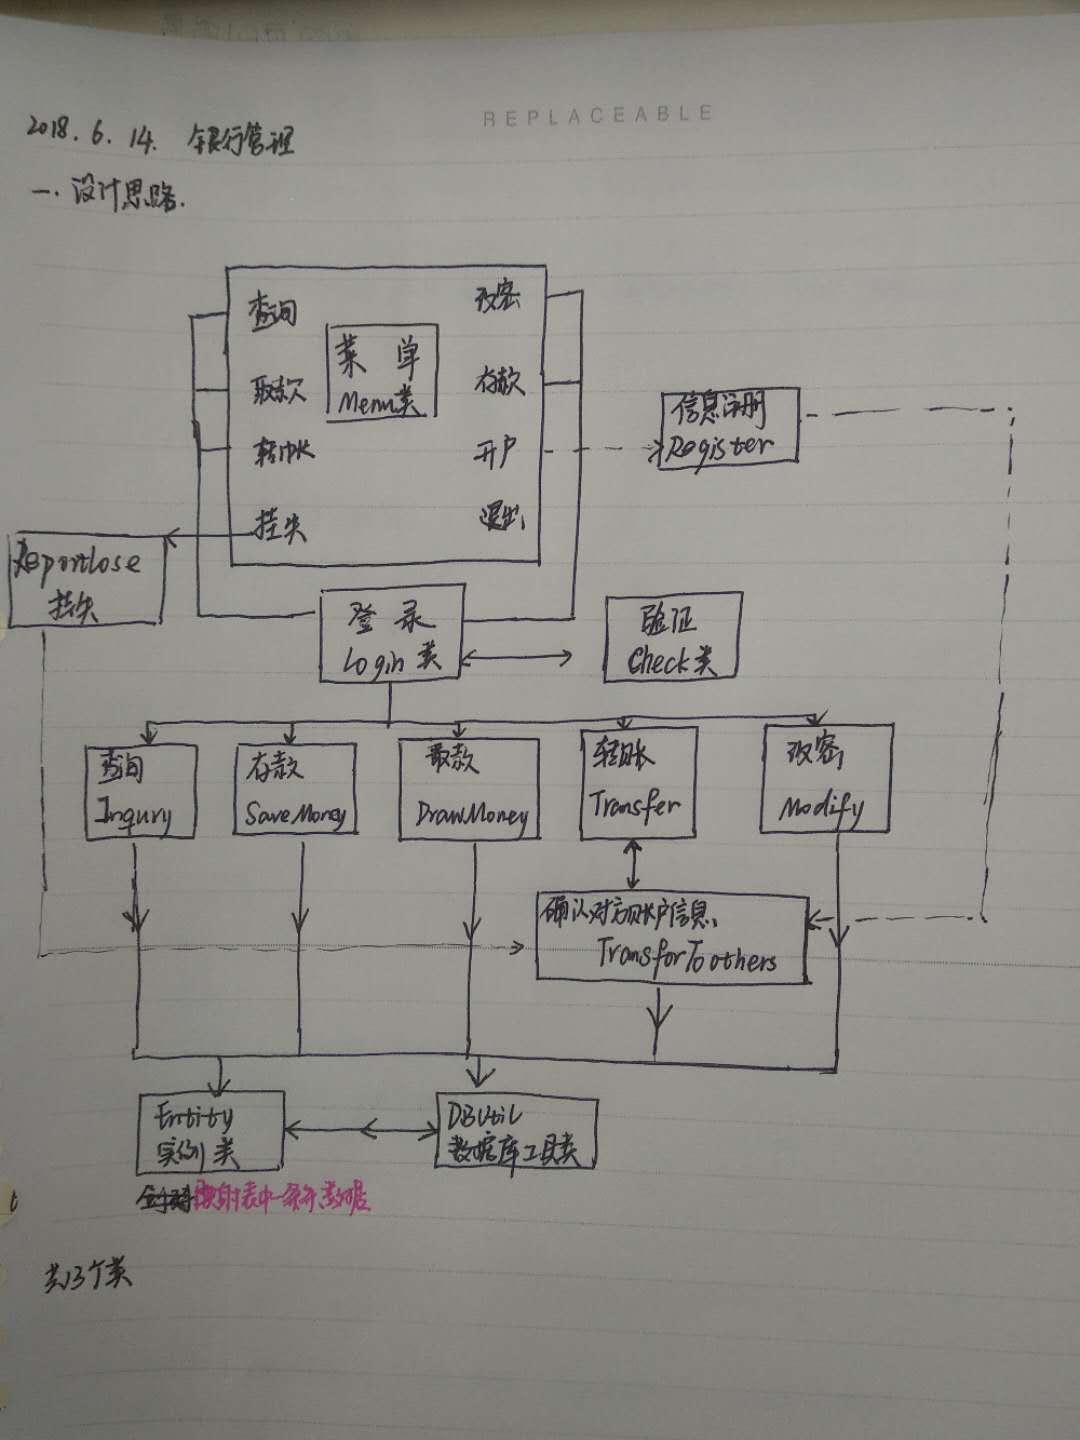 REPLACEABLE
2018.6.14. 银行管理
一.设计思路.
查询
改密
菜单
Menu类
取款
存款
转帐
开户
挂失
退出
信息注册
Register
Reportlose
挂失
登录
Login类
验证
Check类
查询
Inqury
存款
SaveMoney
取款
DrawMoney
转账
Transfer
改密
Modify
确认对方账户信息
TransforToothers
Entity
实例类
DBUtil
数据库工具类
映射表中一条件数据
共13个类